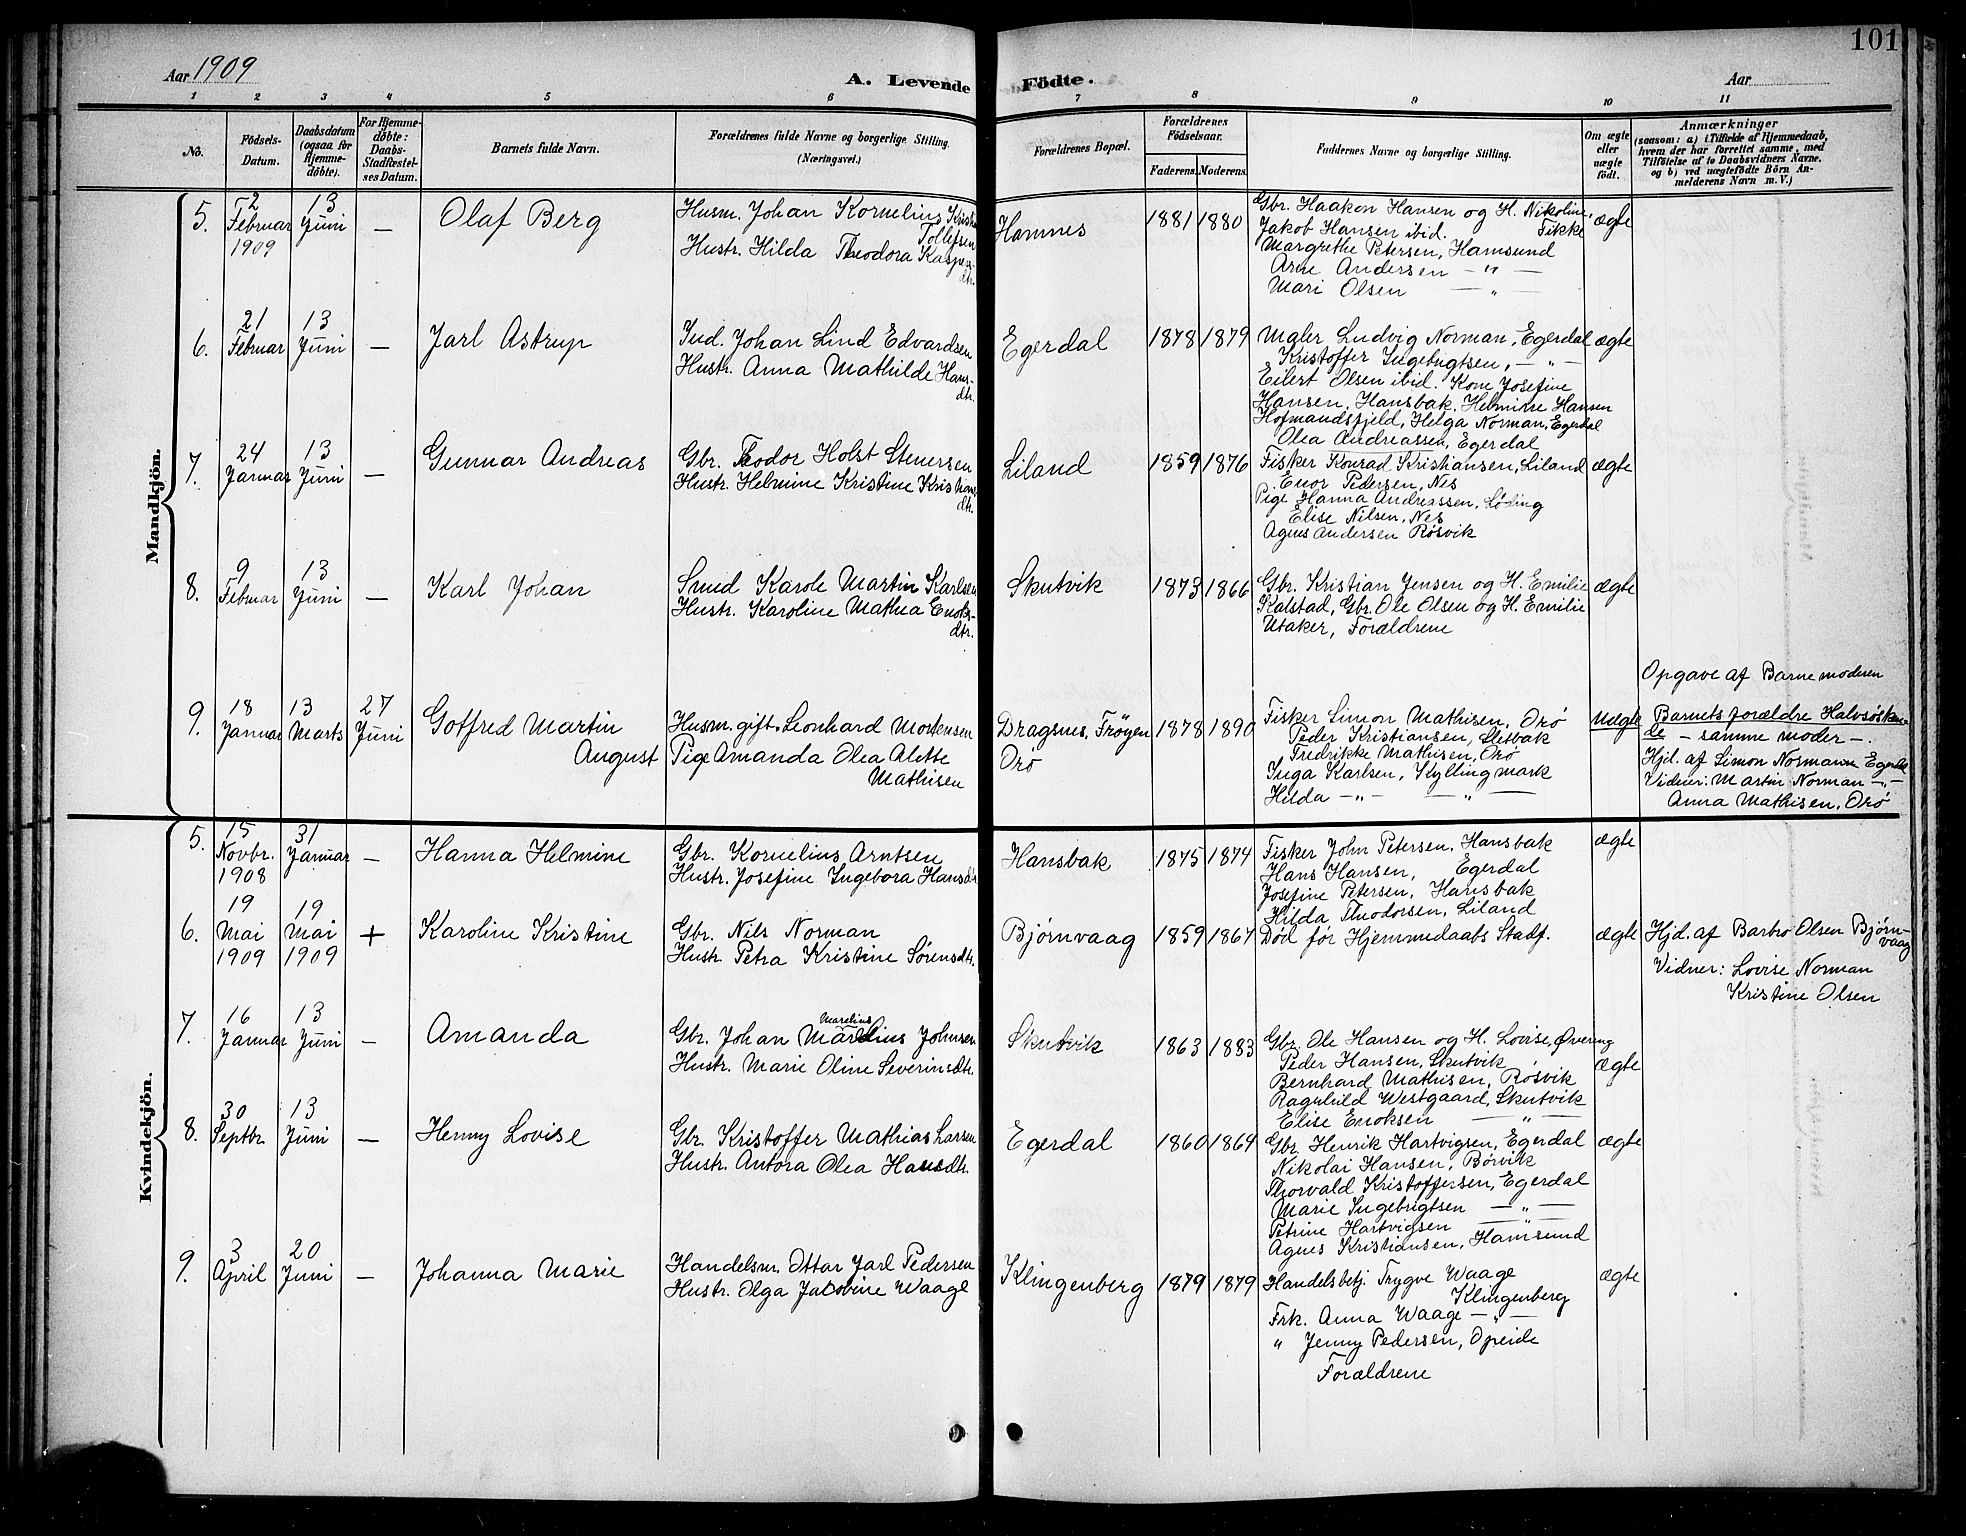 Aar 1909
A. Levende Födte.
Aar
101
1 2 3 4 5 6 7 8 9 10 11
No.
Födsels-Datum.
Daabsdatum (ogsaa for Hjemmedöbte).
For Hjemmedöbte: Daabs-Stadfæstelses Datum.
Barnets fulde Navn.
Forældrenes fulde Navne og borgerlige Stilling. (Næringsvei.)
Forældrenes Bopæl.
Forældrenes Födselsaar.
Faderens. Moderens.
Faddernes Navne og borgerlige Stilling.
Om ægte eller uægte födt.
Anmærkninger
(saasom: a) i Tilfælde af Hjemmedaab, hvem der har forrettet samme, med Tilföielse af to Daabsvidners Navne. og b) ved uægtefödte Börn Anmelderens Navn m. V.)
Mandkjön.
5. 2 Februar 1909 13 Juni — Olaf Berg
Husm. Johan Kornelius Kristian Tollefsen
Hustr. Hilda Theodora Kaspersdtr.
Hamnes 1881 1880
Gbr. Haakon Hansen og H. Nikoline, Fikke
Jakob Hansen ibid.
Margrethe Petersen, Hamsund
Arne Andersen — " —
Mari Olsen — " —
ægte
6. 21 Februar 13 Juni — Jarl Astrup
Ind. Johan Lind Edvardsen
Hustr. Anna Mathilde Hansdtr.
Egerdal 1878 1879
Maler Ludvig Norman, Egerdal
Kristoffer Ingebrigtsen, — " —
Eilert Olsen ibid. Kone Josefine
Hansen, Hansbak. Helmine Hansen
Hofmandsfjeld, Helga Norman, Egerdal
Olea Andreassen, Egerdal
ægte
7. 24 Januar 13 Juni — Gunnar Andreas
Gbr. Theodor Holst Stenersen
Hustr. Helmine Kristine Kristiansdtr.
Liland 1859 1876
Fisker Konrad Kristiansen, Liland
Enor Pedersen, Nes
Pige Hanna Andreassen, Løding
Elise Nilsen, Nes
Agnes Andersen Røsvik
ægte
8. 9 Februar 13 Juni — Karl Johan
Smed Karole Martin Karlsen
Hustr. Karoline Mathea Enoksdtr.
Skutvik 1873 1866
Gbr. Kristian Jensen og H. Emilie
Kalstad, Gbr. Ole Olsen og H. Emilie
Utaker, Forældrene
ægte
9. 18 Januar 13 Marts 27 Juni Gotfred Martin August
Husm. gift. Leonhard Mortensen
Pige Amanda Olea Alette Mathisen
Dragsnes, Frøyen
Orø
1878 1890
Fisker Simon Mathisen, Orø
Peder Kristiansen, Sletbak
Fredrikke Mathisen, Orø
Inga Karlsen, Kyllingmark
Hilda — " — — " —
Uægte
Opgave af Barnemoderen
Barnets forældre Halvsøskende — samme moder —.
Hjd. af Simon Normann Egerdal
Vidner: Martin Norman — " —
Anna Mathisen, Orø
Kvindekjön.
5. 15 Novbr. 1908 31 Januar — Hanna Helmine
Gbr. Kornelius Arntsen
Hustr. Josefine Ingebora Hansdt.
Hansbak 1875 1874
Fisker John Petersen, Hansbak
Hans Hansen, Egerdal
Josefine Petersen, Hansbak
Hilda Theodorsen, Liland
ægte
6. 19 Mai 1909 19 Mai 1909 + Karoline Kristine
Gbr. Nils Norman
Hustr. Petra Kristine Sørensdtr.
Bjørnvaag 1859 1867
Død før Hjemmedaabs Stadf.
ægte
Hjd. af Barbro Olsen Bjørnvaag
Vidner: Lovise Norman
Kristine Olsen
7. 16 Januar 13 Juni — Amanda
Marelius
Gbr. Johan Marelius Johnsen
Hustr. Marie Oline Severinsdtr.
Skutvik 1863 1883
Gbr. Ole Hansen og H. Lovise, Øvereng
Peder Hansen, Skutvik
Bernhard Mathisen, Røsvik
Ragnhild Westgaard, Skutvik
Elise Enoksen — " —
ægte
8. 30 Septbr. 13 Juni — Henny Lovise
Gbr. Kristoffer Mathias Larsen
Hustr. Antora Olea Hansdtr.
Egerdal 1860 1864
Gbr. Henrik Hartvigsen, Egerdal
Nikolai Hansen, Børvik
Thorvald Kristoffersen, Egerdal
Marie Ingebrigtsen — " —
Petrine Hartvigsen — " —
Agnes Kristiansen, Hamsund
ægte
9. 3 April 20 Juni — Johanna Marie
Handelsm. Ottar Jarl Pedersen
Hustr. Olga Jacobine Waage
Klingenberg 1879 1879
Handelsbetj. Trygve Waage Klingenberg
Frk. Anna Waage — " —
" Jenny Pedersen, Opeide
Forældrene
ægte